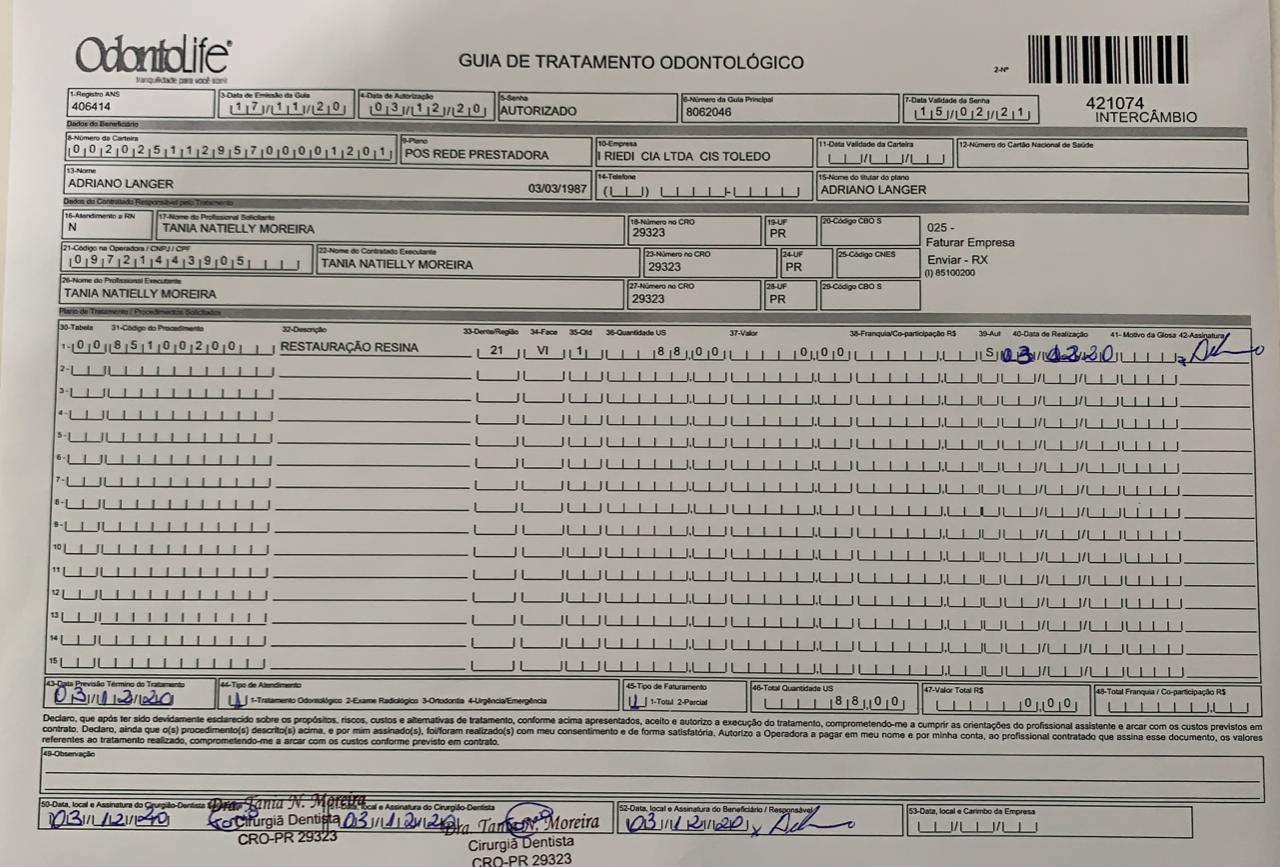 OdontoLife®
tranquilidade para você sorrir
GUIA DE TRATAMENTO ODONTOLÓGICO
2-Nº
421074
INTERCÂMBIO
1-Registro ANS
406414
3-Data de Emissão da Guia
17/11/20
4-Data de Autorização
03/12/20
5-Senha
AUTORIZADO
6-Número da Guia Principal
8062046
7-Data Validade da Senha
15/02/21
Dados do Beneficiário
8-Número da Carteira
00202511295700001201
9-Plano
POS REDE PRESTADORA
10-Empresa
I RIEDI CIA LTDA CIS TOLEDO
11-Data Validade da Carteira
12-Número do Cartão Nacional de Saúde
13-Nome
ADRIANO LANGER 03/03/1987
14-Telefone
15-Nome do titular do plano
ADRIANO LANGER
Dados do Contratado Responsável pelo Tratamento
16-Atendimento a RN
N
17-Nome do Profissional Solicitante
TANIA NATIELLY MOREIRA
18-Número no CRO
29323
19-UF
PR
20-Código CBO S
025 -
Faturar Empresa
Enviar - RX
(I) 85100200
21-Código na Operadora / CNPJ / CPF
09721443905
22-Nome do Contratado Executante
TANIA NATIELLY MOREIRA
23-Número no CRO
29323
24-UF
PR
25-Código CNES
26-Nome do Profissional Executante
TANIA NATIELLY MOREIRA
27-Número no CRO
29323
28-UF
PR
29-Código CBO S
Plano de Tratamento / Procedimentos Solicitados
30-Tabela 31-Código do Procedimento 32-Descrição 33-Dente/Região 34-Face 35-Qtd 36-Quantidade US 37-Valor 38-Franquia/Co-participação R$ 39-Aut 40-Data de Realização 41- Motivo da Glosa 42-Assinatura
1- 00 85100200 RESTAURAÇÃO RESINA 21 VI 1 88,00 0,00 S 03/12/20
2-
3-
4-
5-
6-
7-
8-
9-
10
11
12
13
14
15
43-Data Previsão Término do Tratamento
03/12/20
44-Tipo de Atendimento
1 1-Tratamento Odontológico 2-Exame Radiológico 3-Ortodontia 4-Urgência/Emergência
45-Tipo de Faturamento
1 1-Total 2-Parcial
46-Total Quantidade US
88,00
47-Valor Total R$
0,00
48-Total Franquia / Co-participação R$
Declaro, que após ter sido devidamente esclarecido sobre os propósitos, riscos, custos e alternativas de tratamento, conforme acima apresentados, aceito e autorizo a execução do tratamento, comprometendo-me a cumprir as orientações do profissional assistente e arcar com os custos previstos em
contrato. Declaro, ainda que o(s) procedimento(s) descrito(s) acima, e por mim assinado(s), foi/foram realizado(s) com meu consentimento e de forma satisfatória. Autorizo a Operadora a pagar em meu nome e por minha conta, ao profissional contratado que assina esse documento, os valores
referentes ao tratamento realizado, comprometendo-me a arcar com os custos conforme previsto em contrato.
49-Observação
50-Data, local e Assinatura do Cirurgião-Dentista
03/12/20
Dra. Tania N. Moreira
Cirurgiã Dentista
CRO-PR 29323
local e Assinatura do Cirurgião-Dentista
03/12/20
Dra. Tania N. Moreira
Cirurgiã Dentista
CRO-PR 29323
52-Data, local e Assinatura do Beneficiário / Responsável
03/12/20
53-Data, local e Carimbo da Empresa